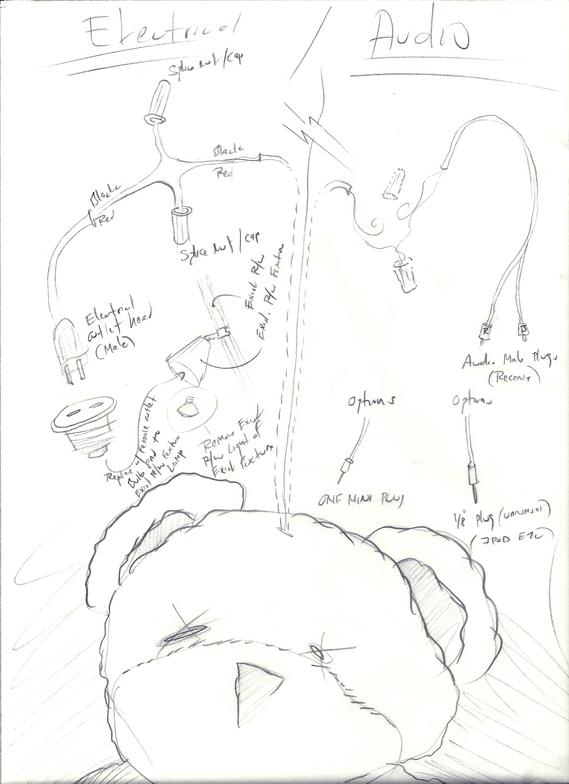 Electrical
Audio
Splice nut/cap
Black
Red
Black
Red
Splice nut/cap
Electrical
outlet head
(Male)
Exist. Fixture
Replace w/ Female outlet
Bulb
Exist Fixture
Lamp
Remove Exist
Light of
Exist Fixture
R
Audio Male Plugs
Options
Option
ONE MINI PLUG
1/8" Plug (universal)
(IPOD ETC